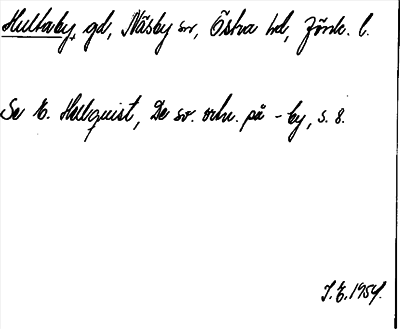 Hultaby, gd, Näsby sn, Östra hd, Jönk. l.
Se E. Hellquist, De sv. ortn. på -by, s. 8.
I.E. 1954.